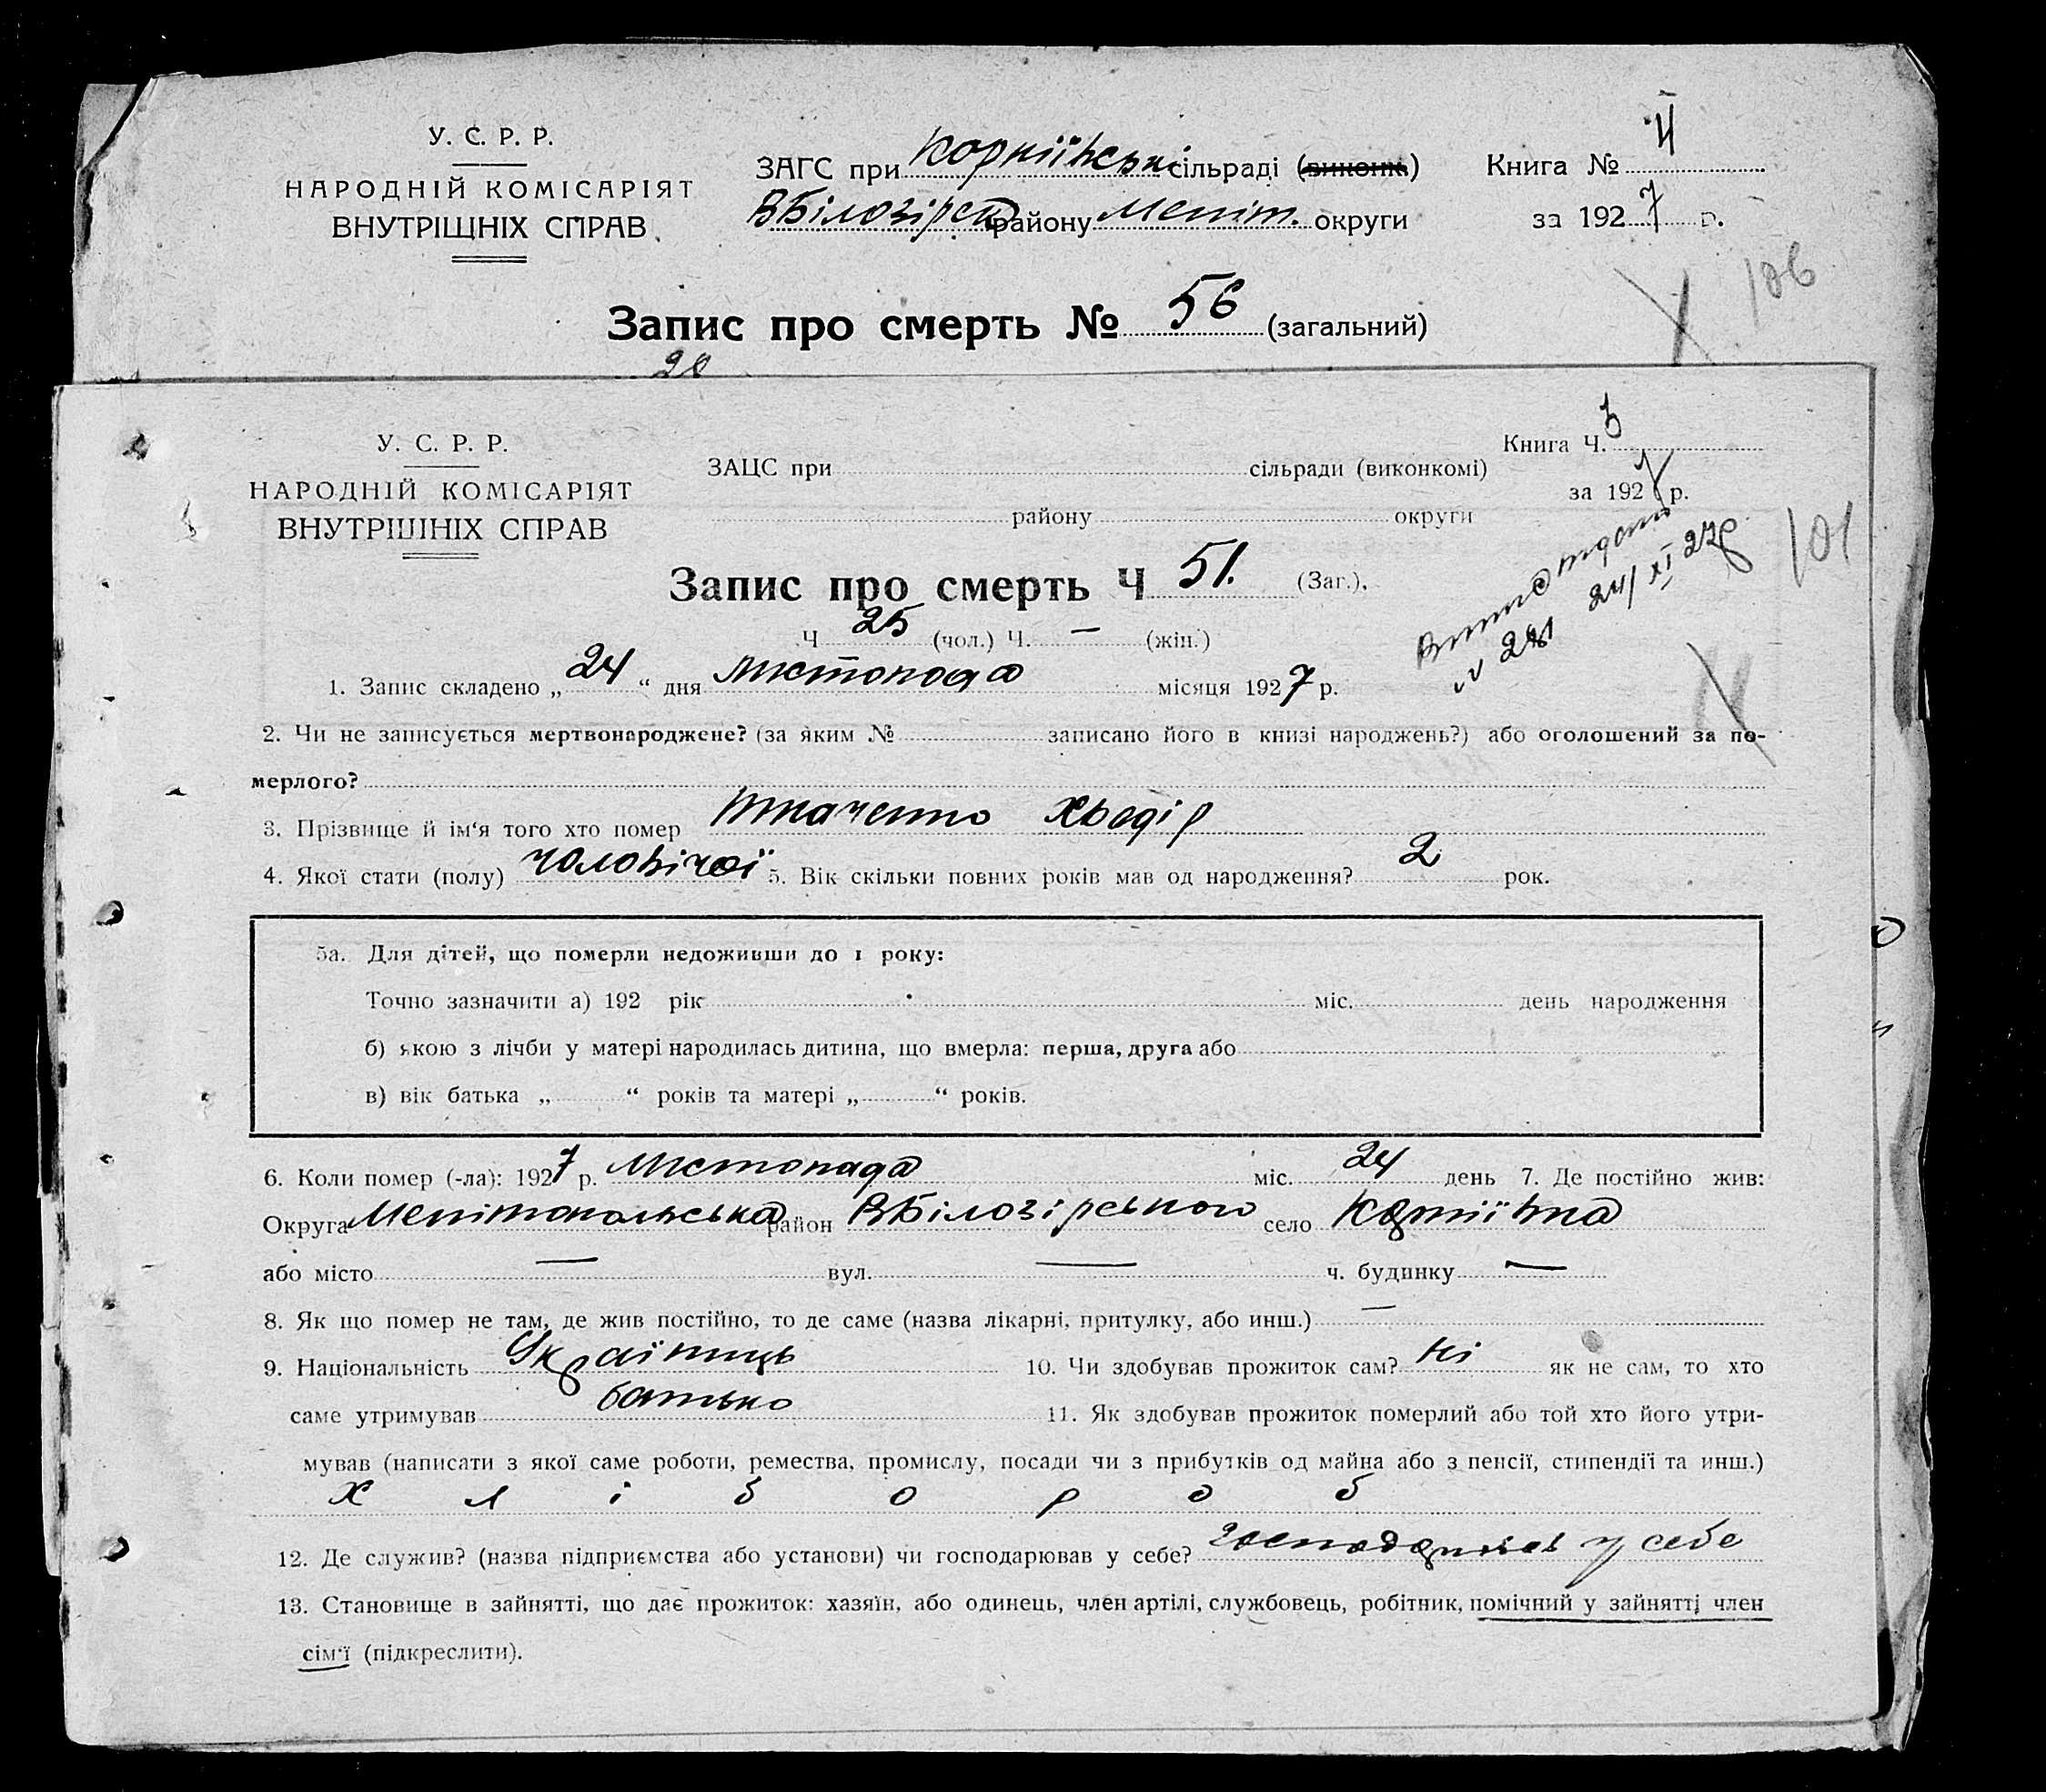 У. С. Р. Р.
НАРОДНІЙ КОМІСАРІЯТ
ВНУТРІШНІХ СПРАВ
ЗАГС при Корніївські сільраді (виконк.)
ВБілозірск району Меліт. округи
Книга № 4
за 1927 р.
106
Запис про смерть № 56 (загальний)
У. С. Р. Р.
НАРОДНІЙ КОМІСАРІЯТ
ВНУТРІШНІХ СПРАВ
ЗАЦС при сільради (виконкомі)
району округи
Книга Ч.
за 192 р.
101
24/XI 27р
Запис про смерть Ч 51. (Заг.).
Ч 25 (чол.) Ч. — (жін.)
1. Запис складено „ 24 “ дня листопада місяця 1927 р.
2. Чи не записується мертвонароджене? (за яким № записано його в книзі народжень?) або оголошений за по-
мерлого?
3. Прізвище й ім‘я того хто помер Ткаченко Хведір
4. Якої стати (полу) чоловічої 5. Вік скільки повних років мав од народження? 2 рок.
5а. Для дітей, що померли недоживши до 1 року:
Точно зазначити а) 192 рік міс. день народження
б) якою з лічби у матері народилась дитина, що вмерла: перша, друга або
в) вік батька „ “ років та матері „ “ років.
6. Коли помер (-ла): 1927 р. листопада міс. 24 день 7. Де постійно жив:
Округа Мелітопольська район ВБілозірського село Корніївка
або місто — вул. — ч. будинку —
8. Як що помер не там, де жив постійно, то де саме (назва лікарні, притулку, або инш.) —
9. Національність Українець 10. Чи здобував прожиток сам? ні як не сам, то хто
саме утримував батько 11. Як здобував прожиток померлий або той хто його утри-
мував (написати з якої саме роботи, ремества, промислу, посади чи з прибутків од майна або з пенсії, стипендії та инш.)
х л і б о р о б
12. Де служив? (назва підприємства або установи) чи господарював у себе? господарював у себе
13. Становище в зайнятті, що дає прожиток: хазяїн, або одинець, член артілі, службовець, робітник, помічний у зайнятті член
сім‘ї (підкреслити).